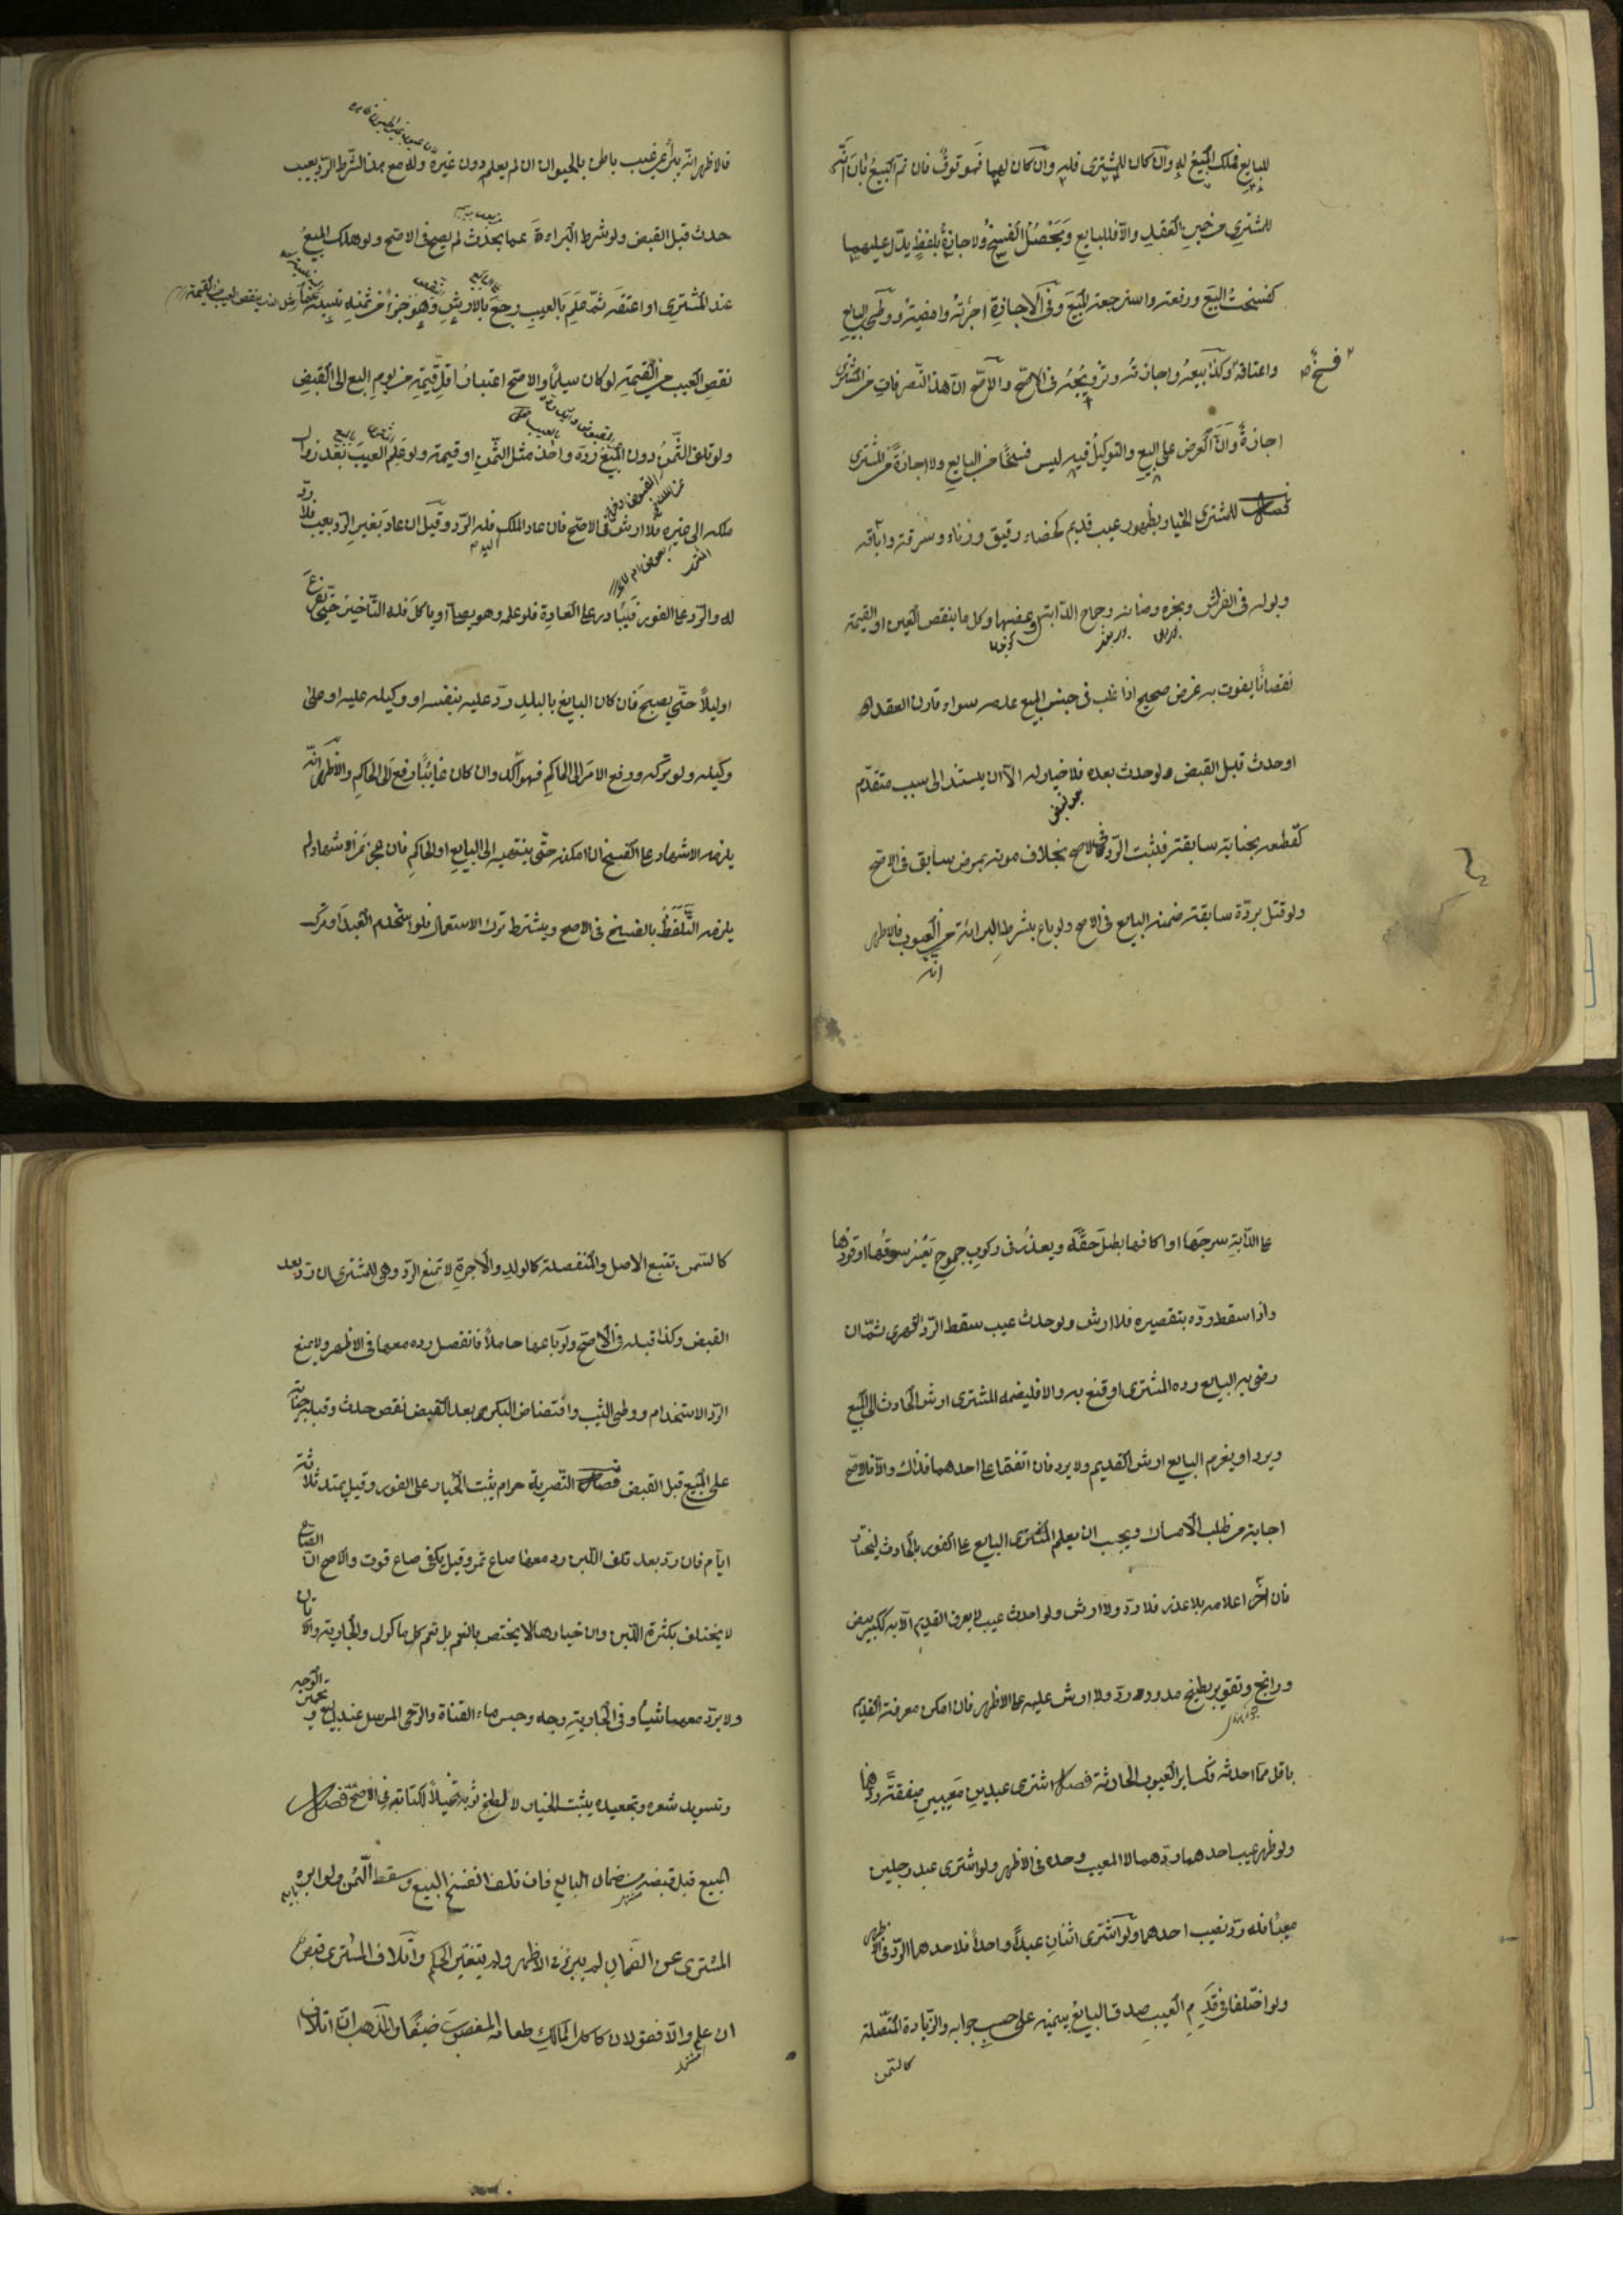 للبايع فملك المبيع له وان كان للمشترى فله وان كان لهما فموقوف فان تم البيع بان انه
للمشترى من حين العقد والا فللبايع ويحصل الفسخ والاجازة بلفظ يدل عليهما
كفسخت البيع ورفعته واسترجعت المبيع وفى الاجازة اجزته وامضيته ووطى البايع
واعتاقه فسخ وكذا بيعه واجازته وتزويجه فى الاصح والاصح ان هذا التصرفات من المشترى
اجازة وان العرض على البيع والتوكيل فيه ليس فسخا من البايع ولا اجازة من المشترى
فصل للمشترى الخيار بظهور عيب قديم كخصاء رقيق وزناء وسرقة واباقه
وبوله فى الفراش وبخره وصنانه وجماح الدابة وعضها وكل ما ينقص العين او القيمة
نقصانا يفوت به غرض صحيح اذا غلب فى جنس المبيع عدمه سواء قارن العقد ام
او حدث قبل القبض ولو حدث بعده فلا خيار له الا ان يستند الى سبب متقدم
كقطعه بجناية سابقة فيثبت الرد فى الاصح بخلاف موته بمرض سابق فى الاصح
ولو قتل بردة سابقة ضمنه البايع فى الاصح ولو باع بشرط البرائة من العيوب فالاظهر
انه
فالاظهر انه يبرأ عن عيب باطن بالحيوان ان لم يعلم دون غيره وله مع هذا الشرط الرد بعيب
حدث قبل القبض ولو شرط البراءة عما يحدث لم يصح فى الاصح ولو هلك المبيع
عند المشترى او اعتقه ثم علم بالعيب رجع بالارش وهو جزء من ثمنه نسبته
نقص العيب من القيمة لو كان سليما والاصح اعتبار اقل قيمة من يوم البيع الى القبض
ولو تلف الثمن دون المبيع رده واخذ مثل الثمن او قيمته ولو علم العيب بعد زوال
ملكه الى غيره فلا ارش فى الاصح فان عاد الملك فله الرد وقيل ان عاد بغير الرد بعيب فلا رد
له والرد على الفور فيبادر على العادة فلو علمه وهو يصلى او ياكل فله التأخير حتى يفرغ
او ليلا حتى يصبح فان كان البايع بالبلد رد عليه بنفسه او وكيله عليه او على
وكيله ولو تركه ورفع الامر الى الحاكم فهو آكد وان كان غائبا رفع الى الحاكم والاظهر انه
يلزمه الاشهاد على الفسخ ان امكنه حتى ينتهيه الى البايع او الحاكم فان عجز عن الاشهاد لم
يلزمه التلفظ بالفسخ فى الاصح ويشترط ترك الاستعمال فلو استخدم العبد او ترك
على الدابة سرجها او اكافها بطل حقه ويعذر فى ركوب جموح يعسر سوقها او قودها
واذا سقط رده بتقصيره فلا ارش ولو حدث عيب سقط الرد القهرى ثم ان
رضى به البايع رده المشترى او قنع به والا فليضم المشترى ارش الحادث الى المبيع
ويرد او يغرم البايع ارش القديم ولا يرد فان اتفقا على احدهما فذاك والا فالاصح
اجابة من طلب الامساك ويجب ان يعلم المشترى البايع على الفور بالحادث ليختار
فان اخر اعلامه بلا عذر فلا رد ولا ارش ولو احدث عيب لا يعرف القديم الا به ككسر بيض
ورانج وتقوير بطيخ مدود رد ولا ارش عليه على الاظهر فان امكن معرفة القديم
باقل مما احدثه فكساير العيوب الحادثة فصل اشترى عبدين معيبين صفقة ردهما
ولو ظهر عيب احدهما ردهما لا المعيب وحده فى الاظهر ولو اشترى عبد رجلين
معيبا فله رد نصيب احدهما ولو اشترى اثنان عبدا واحدا فلاحدهما الرد فى الاظهر
ولو اختلفا فى قدم العيب صدق البايع بيمينه على حسب جوابه والزيادة المتصلة
كالسمن
كالسمن تتبع الاصل والمنفصلة كالولد والاجرة لا تمنع الرد وهى للمشترى ان رد بعد
القبض وكذا قبله فى الاصح ولو باعها حاملا فانفصل رده معها فى الاظهر ولا يمنع
الرد الاستخدام ووطى الثيب وافتضاض البكر بعد القبض نقص حدث وقبله جناية
على المبيع قبل القبض فصل التصرية حرام يثبت الخيار على الفور وقيل يمتد ثلاثة
ايام فان رد بعد تلف اللبن رد معها صاع تمر وقيل يكفى صاع قوت والاصح ان الصاع
لا يختلف بكثرة اللبن وان خيارها لا يختص بالنعم بل تعم كل ماكول والجارية والاتان
ولا يرد معهما شيئا وفى الجارية وجه وحبس ماء القناة والرحى المرسل عند البيع وتحمير الوجه
وتسويد شعره وتجعيده يثبت الخيار لا لطخ ثوبه تخييلا لكتابته فى الاصح فصل
المبيع قبل قبضه من ضمان البايع فان تلف انفسخ البيع وسقط الثمن ولو ابرءه
المشترى عن الضمان لم يبرء فى الاظهر ولم يتغير الحكم واتلاف المشترى قبض
ان علم والا فقولان كاكل المالك طعامه المغصوب ضيفا والمذهب ان اتلاف